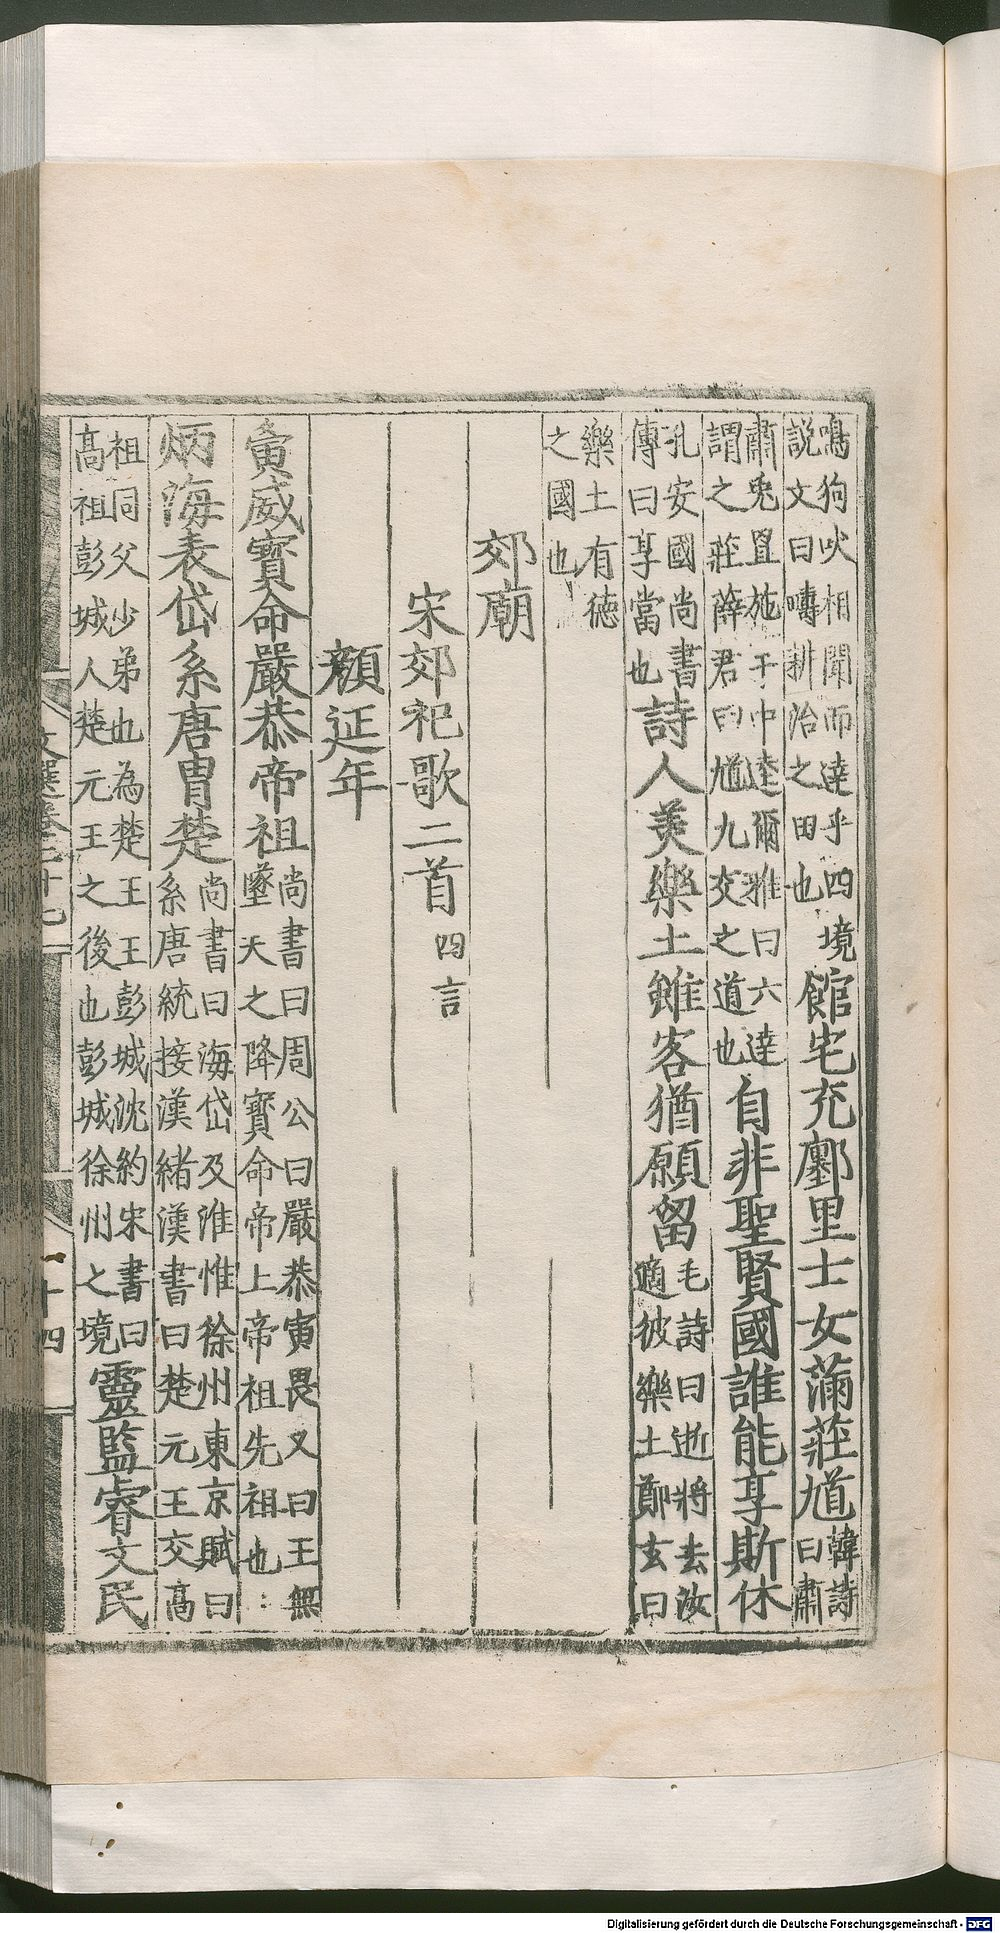 鳴狗吠相聞而達乎四境說文曰疇耕治之田也館宅充鄽里士女滿莊馗韓詩曰肅
肅兎罝施于中逵爾雅曰六達謂之莊薛君曰馗九交之道也自非聖賢國誰能享斯休
孔安國尚書傳曰享當也詩人美樂土雖客猶願留毛詩曰逝將去汝適彼樂土鄭玄曰
樂土有德之國也
郊廟
宋郊祀歌二首四言
顏延年
夤威寶命嚴恭帝祖尚書曰周公曰嚴恭寅畏又曰王無墜天之降寶命帝上帝祖先祖也
炳海表岱系唐胄楚尚書曰海岱及淮惟徐州東京賦曰系唐統接漢緒漢書曰楚元王交高
祖同父少弟也為楚王王彭城沈約宋書曰高祖彭城人楚元王之後也彭城徐州之境靈監睿文民
文選卷二十七
十四
Digitalisierung gefördert durch die Deutsche Forschungsgemeinschaft - DFG